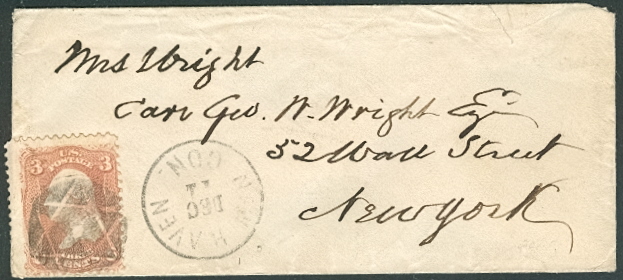 Mrs Wright
Care Geo. W. Wright Esqr
52 Wall Street
New York
3 U.S. 3
POSTAGE
CENTS
NEW HAVEN CONN
DEC